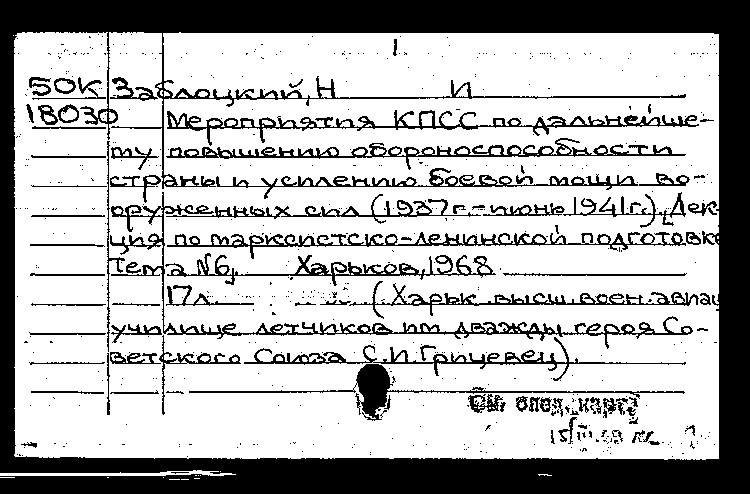 1.
50К Заблоцкий, Н И
18030 Мероприятия КПСС по дальнейше-
му повышению обороноспособности
страны и усилению боевой мощи во-
оруженных сил (1937г.-июнь 1941г.). [Лек-
ция по марксистско-ленинской подготовке
Тема №6], Харьков, 1968
17л. (Харьк. высш. воен. авиац
училище летчиков им дважды героя Со-
ветского Союза С.И. Грицевец).
См. след. карт.
15/III.69